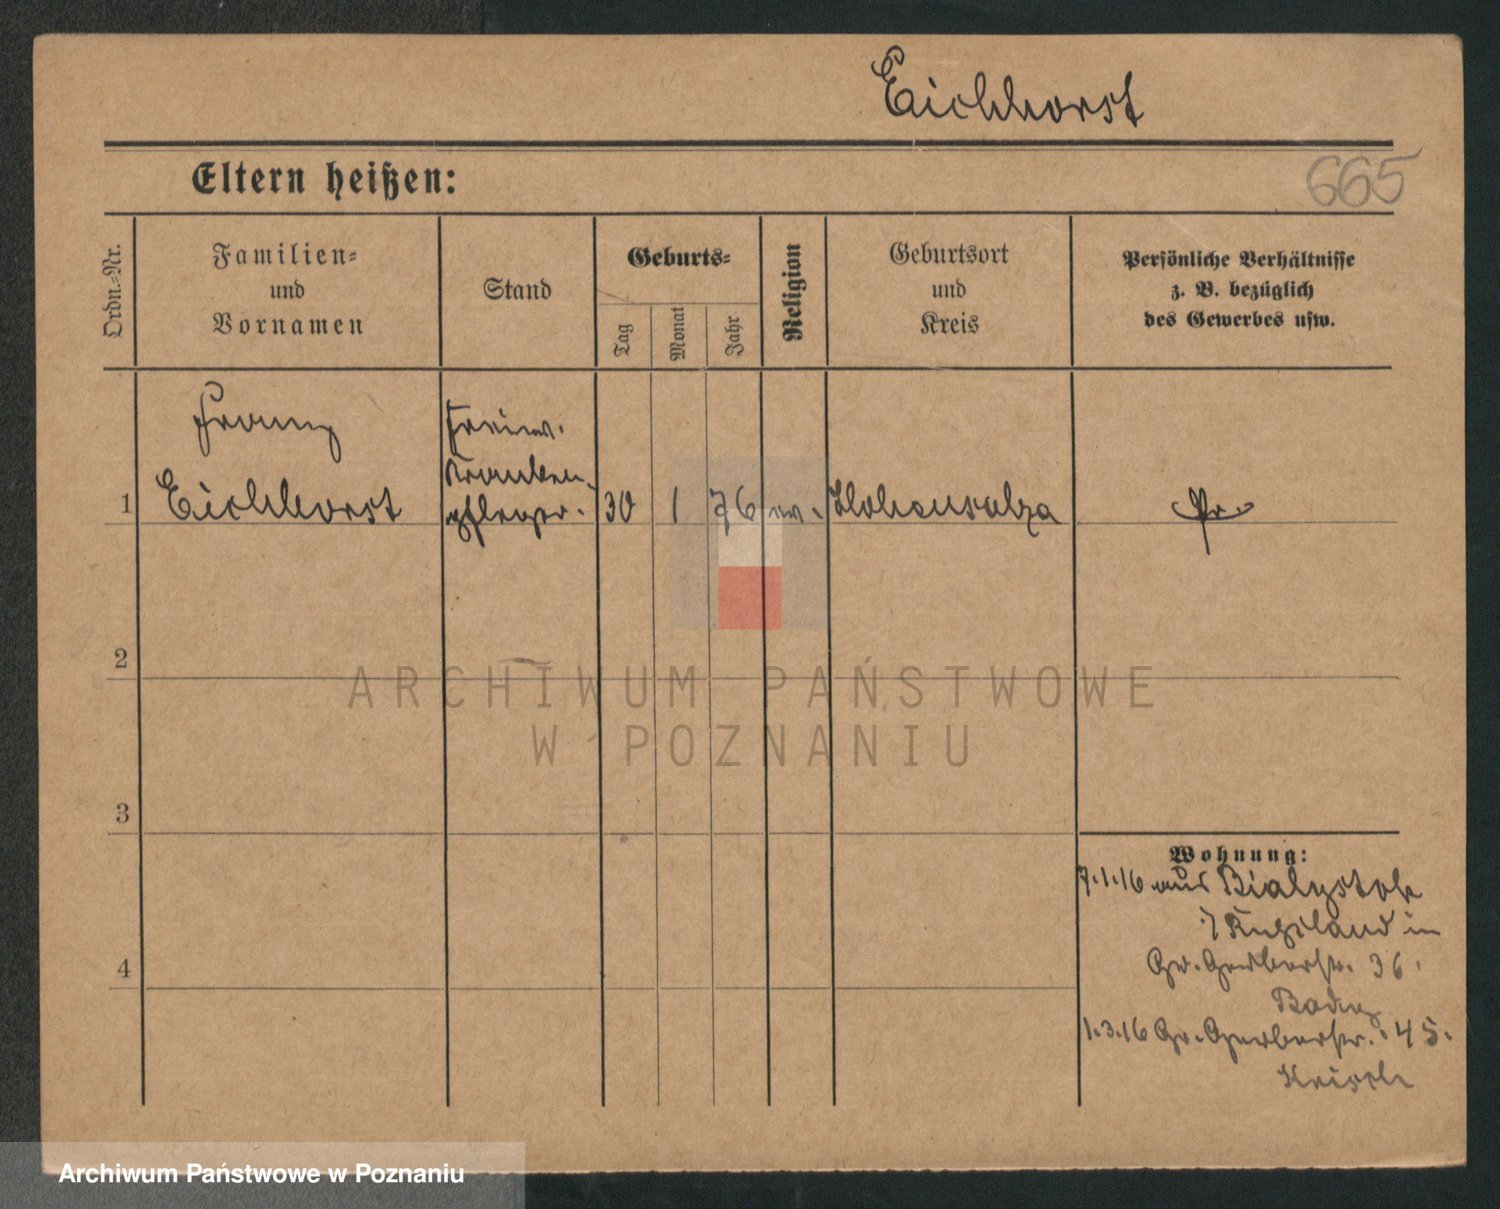 Eichhorst
Eltern heißen:
665
Ordn.-Nr.
Familien-
und
Vornamen
Stand
Geburts-
Tag
Monat
Jahr
Religion
Geburtsort
und
Kreis
Persönliche Verhältnisse
z. B. bezüglich
des Gewerbes usw.
Franz
Freiw.
Kranken-
1 Eichhorst pfleger. 30 1 76 ev. Hohensalza Pr.
2
3
4
Wohnung:
7.1.16 aus Bialystok
i/ Rußland in
Gr. Gerberstr. 36.
1.3.16 Gr. Gerberstr. 45.
ARCHIWUM PAŃSTWOWE
W POZNANIU
Archiwum Państwowe w Poznaniu